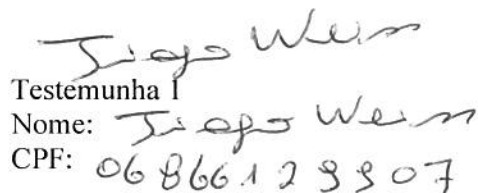 Tiago Weiss
Testemunha 1
Nome: Tiago Weiss
CPF: 06866129907